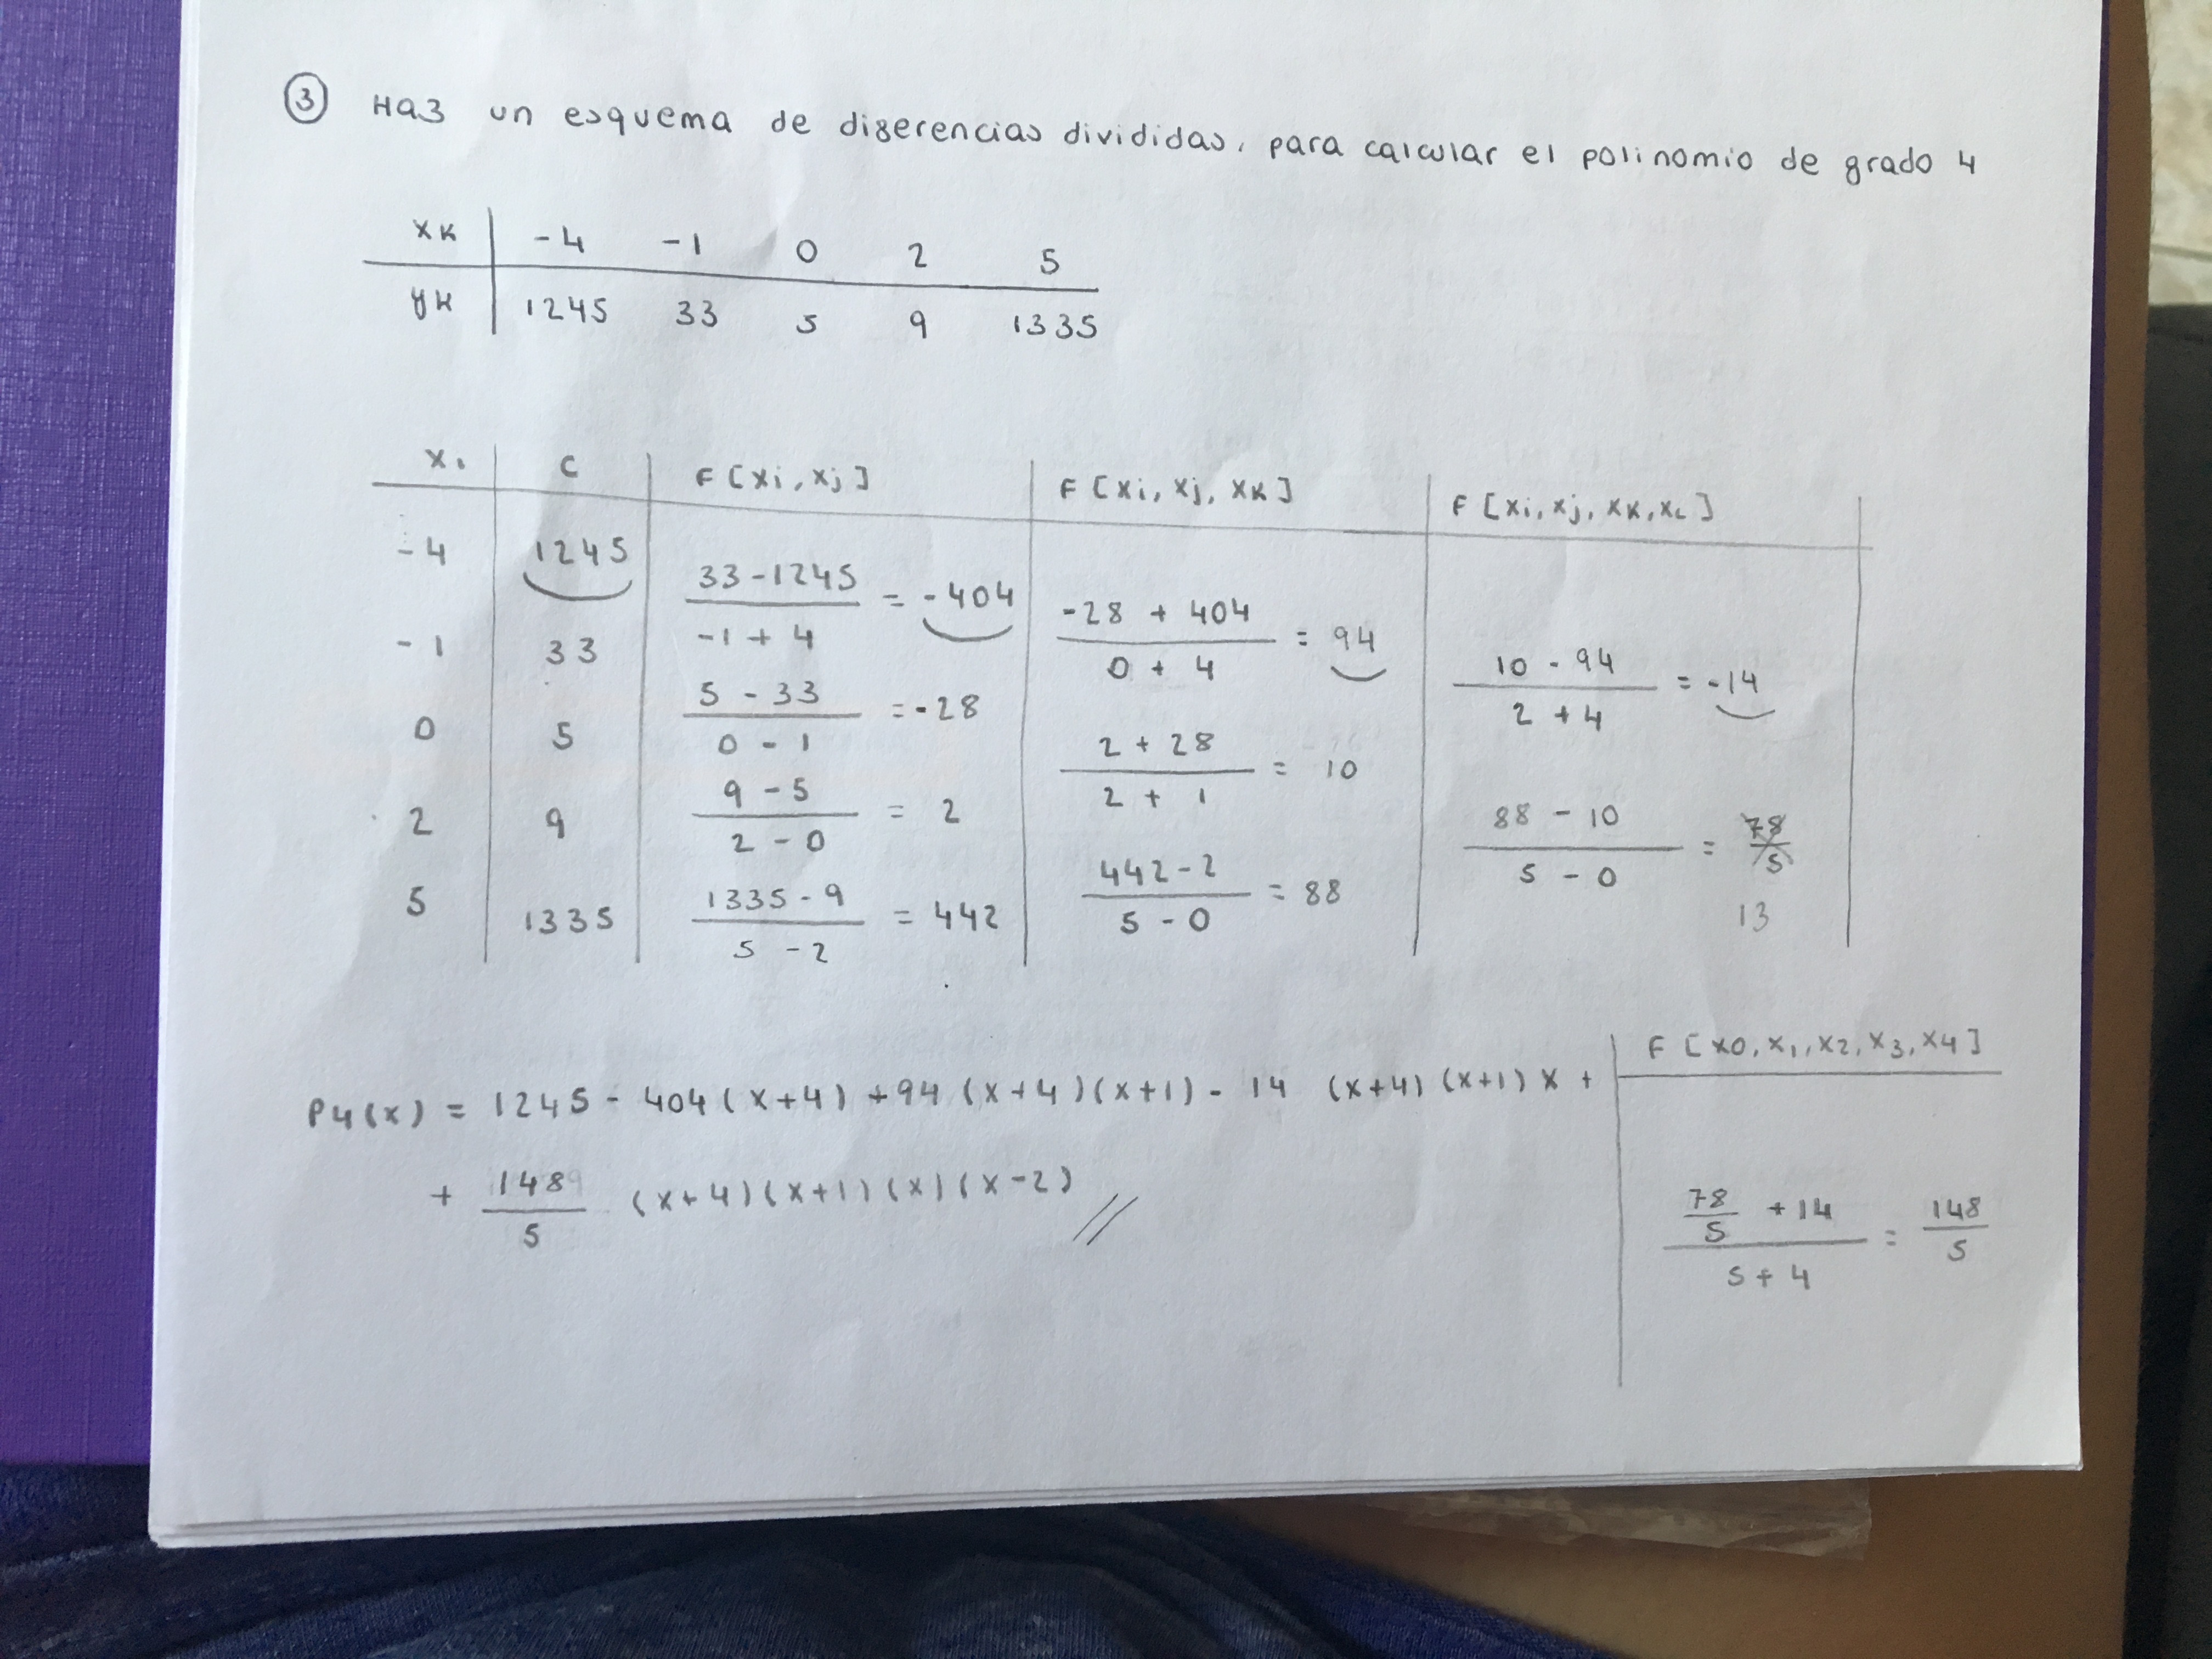 ③ Haz un esquema de diferencias divididas, para calcular el polinomio de grado 4
xk | -4 -1 0 2 5
yk | 1245 33 5 9 1335
x. | C | F[xi,xj] | F[xi,xj,xk] | F[xi,xj,xk,xL]
-4 | 1245 | (33-1245)/(-1+4) = -404 | (-28+404)/(0+4) = 94 | (10-94)/(2+4) = -14
-1 | 33 | (5-33)/(0-1) = -28 | (2+28)/(2+1) = 10 | (88-10)/(5-0) = 78/5
0 | 5 | (9-5)/(2-0) = 2 | (442-2)/(5-0) = 88 | 13
2 | 9 | (1335-9)/(5-2) = 442
5 | 1335
P4(x) = 1245 - 404(x+4) + 94(x+4)(x+1) - 14 (x+4)(x+1)x +
+ 148/5 (x+4)(x+1)(x)(x-2) //
F[x0,x1,x2,x3,x4]
(78/5 + 14)/(5+4) = 148/5